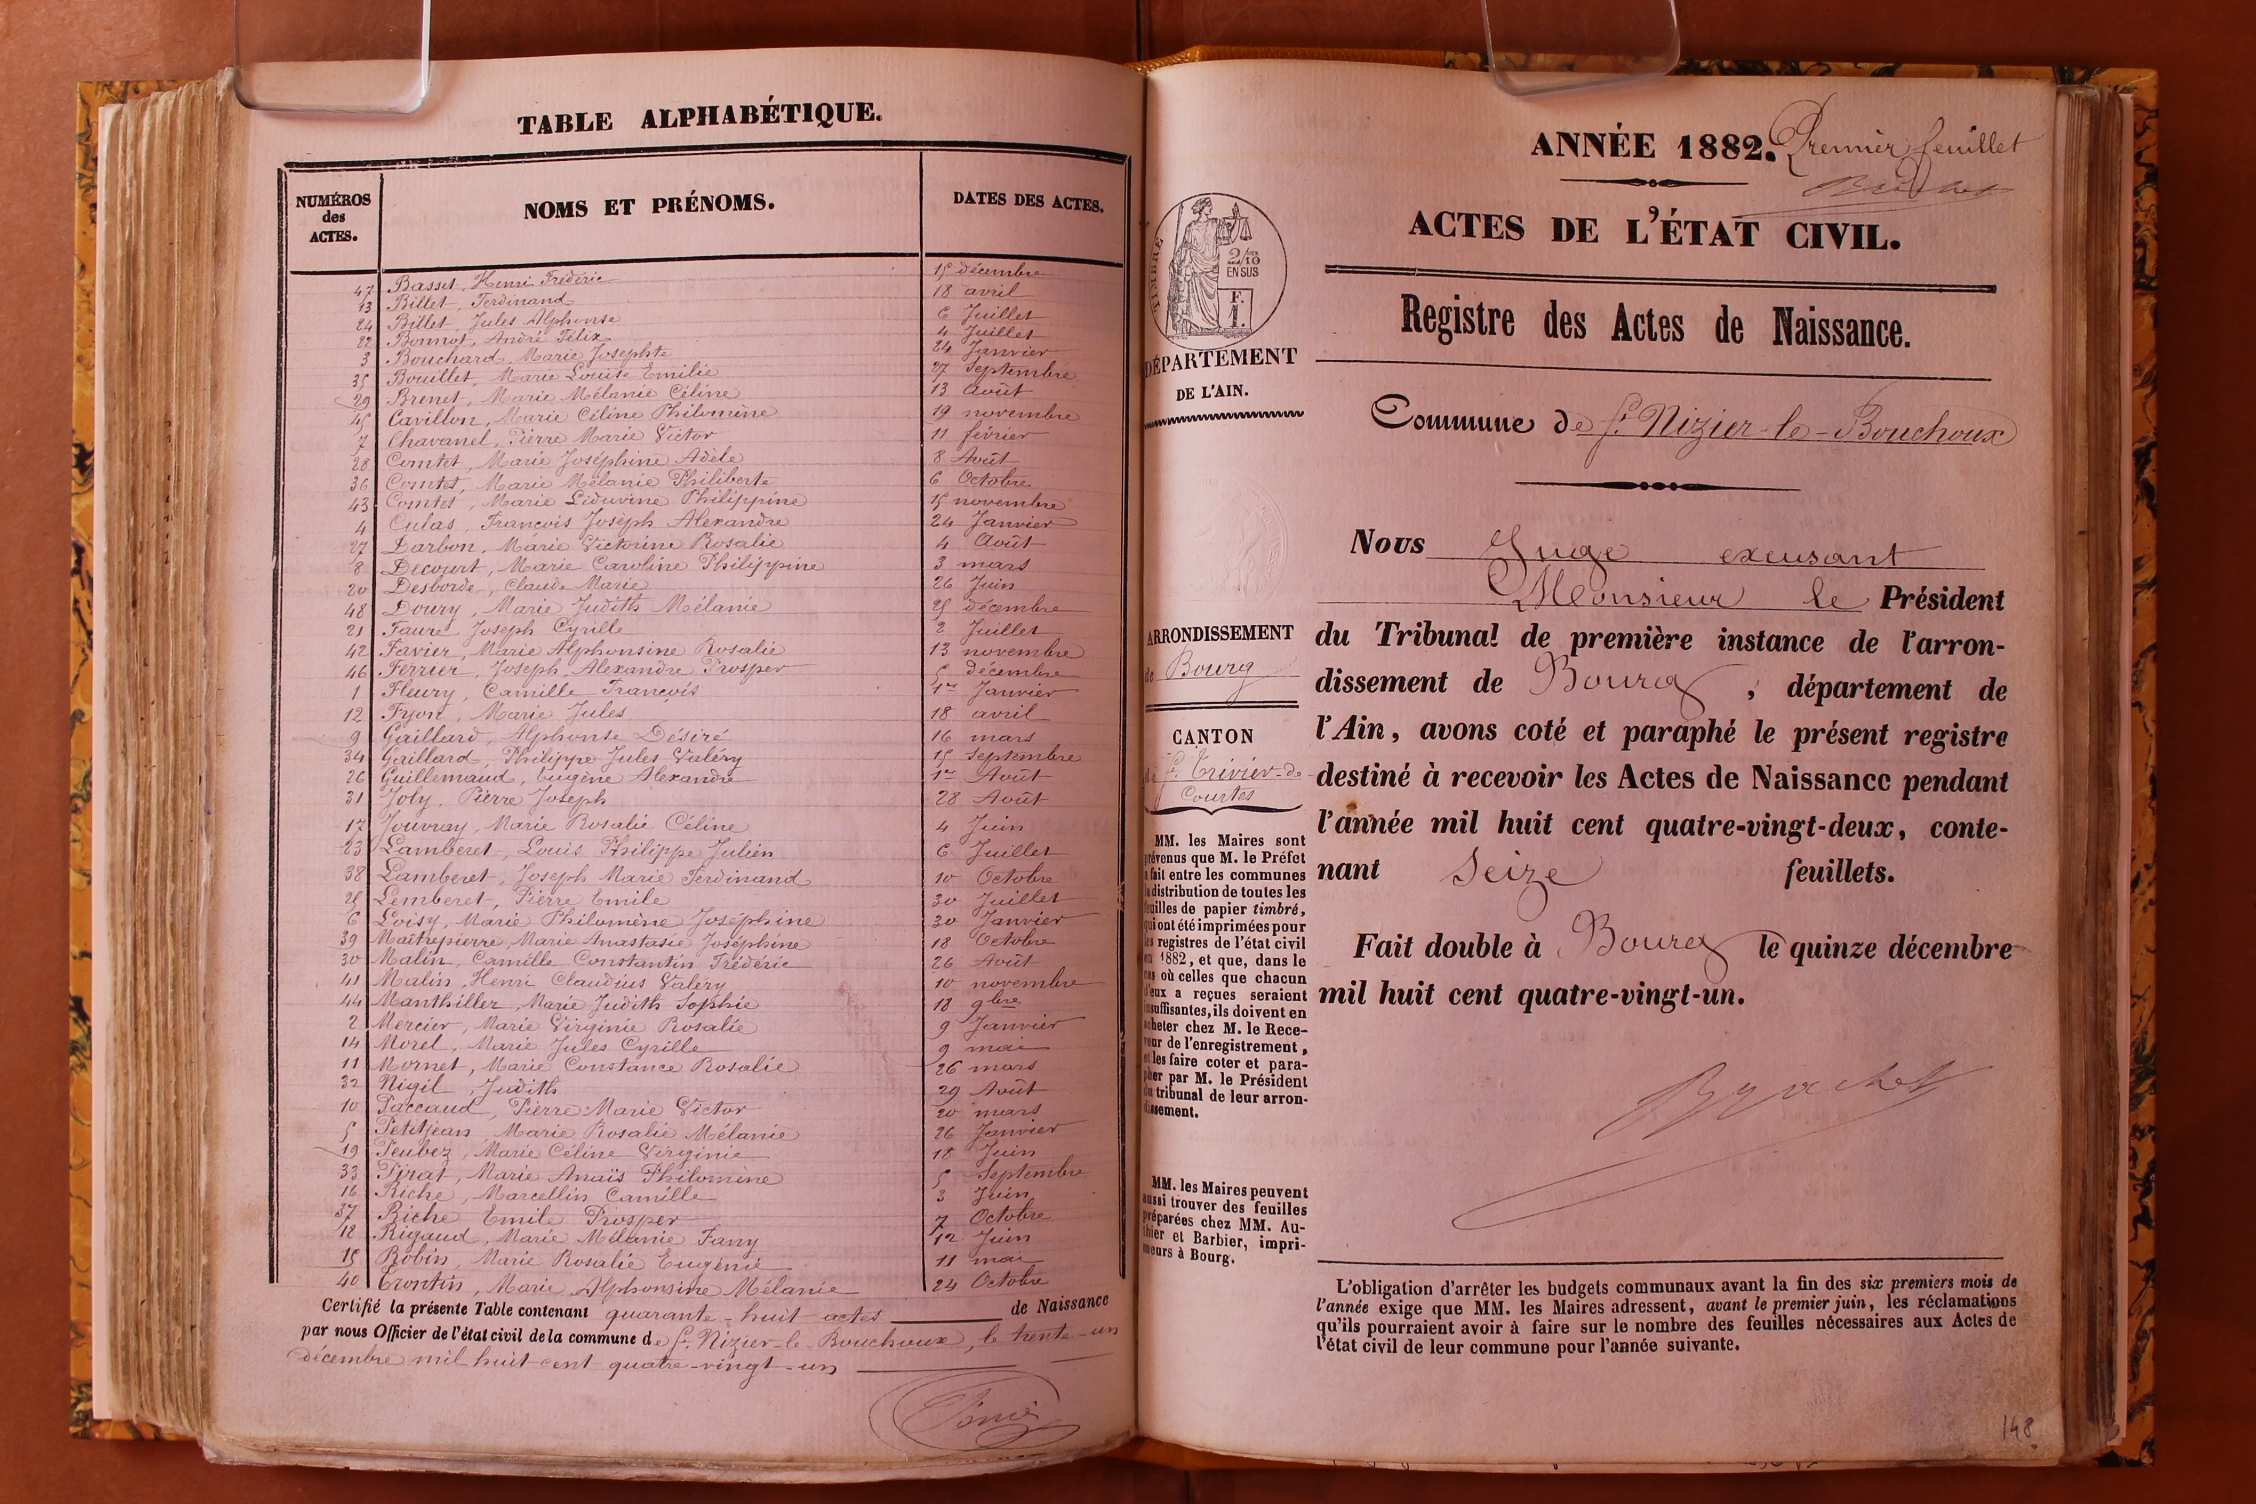 TABLE ALPHABÉTIQUE.
NUMÉROS des ACTES. NOMS ET PRÉNOMS. DATES DES ACTES.
47 Basset, Henri Frédéric 15 décembre
13 Billet, Ferdinand 18 avril
24 Billet, Jules Alphonse 6 Juillet
22 Bonnot, André Félix 4 Juillet
3 Bouchard, Marie Josephte 24 Janvier
35 Bouillet, Marie Louise Emilie 27 Septembre
29 Brenet, Marie Mélanie Céline 13 Août
45 Cavillon, Marie Céline Philomène 19 novembre
7 Chavanel, Pierre Marie Victor 11 février
28 Comtet, Marie Joséphine Adèle 8 Août
36 Comtet, Marie Mélanie Philiberte 6 Octobre
43 Comtet, Marie Liduvine Philippine 15 novembre
4 Culas, François Joseph Alexandre 24 Janvier
27 Darbon, Marie Victorine Rosalie 4 Août
8 Decourt, Marie Caroline Philippine 3 mars
20 Desborde, Claude Marie 26 Juin
48 Doury, Marie Judith Mélanie 25 décembre
21 Faure Joseph Cyrille 2 Juillet
42 Favier, Marie Alphonsine Rosalie 13 novembre
46 Ferrier, Joseph Alexandre Prosper 5 décembre
1 Fleury, Camille François 1er Janvier
12 Fyon, Marie Jules 18 avril
9 Gaillard, Alphonse Désiré 16 mars
34 Gaillard, Philippe Jules Valéry 15 Septembre
26 Guillemaud, Eugène Alexandre 1er Août
31 Joly, Pierre Joseph 28 Août
17 Jouvray, Marie Rosalie Céline 4 Juin
23 Lamberet, Louis Philippe Julien 6 Juillet
38 Lamberet, Joseph Marie Ferdinand 10 Octobre
25 Lemberet, Pierre Emile 30 Juillet
6 Loisy, Marie Philomène Joséphine 30 Janvier
39 Maîtrepierre, Marie Anastasie Joséphine 18 Octobre
30 Malin, Camille Constantin Frédéric 26 Août
41 Malin, Henri Claudius Valéry 10 novembre
44 Manthiller, Marie Judith Sophie 18 9bre
2 Mercier, Marie Virginie Rosalie 9 Janvier
14 Morel, Marie Jules Cyrille 9 mai
11 Mornet, Marie Constance Rosalie 26 mars
32 Nigil, Judith 29 Août
10 Paccaud, Pierre Marie Victor 20 mars
5 Petitjean, Marie Rosalie Mélanie 26 Janvier
19 Peubez, Marie Céline Virginie 18 Juin
33 Pirat, Marie Anaïs Philomène 5 Septembre
16 Riche, Marcellin Camille 3 Juin
37 Riche Emile Prosper 7 Octobre
18 Rigaud, Marie Mélanie Fany 12 Juin
15 Robin, Marie Rosalie Eugénie 11 mai
40 Trontin, Marie Alphonsine Mélanie 24 Octobre
Certifié la présente Table contenant quarante-huit actes de Naissance
par nous Officier de l'état civil de la commune de St Nizier-le-Bouchoux, le trente-un
décembre mil huit cent quatre-vingt-un
ANNÉE 1882. Premier feuillet
ACTES DE L'ÉTAT CIVIL.
Registre des Actes de Naissance.
TIMBRE
2/10
EN SUS
F.
1.
DÉPARTEMENT
DE L'AIN.
Commune de St Nizier-le-Bouchoux
Nous Juge excusant
Monsieur le Président
du Tribunal de première instance de l'arron-
dissement de Bourg, département de
l'Ain, avons coté et paraphé le présent registre
destiné à recevoir les Actes de Naissance pendant
l'année mil huit cent quatre-vingt-deux, conte-
nant seize feuillets.
Fait double à Bourg le quinze décembre
mil huit cent quatre-vingt-un.
ARRONDISSEMENT
de Bourg
CANTON
de St Trivier-de-
Courtes
MM. les Maires sont
prévenus que M. le Préfet
a fait entre les communes
la distribution de toutes les
feuilles de papier timbré,
qui ont été imprimées pour
les registres de l'état civil
en 1882, et que, dans le
cas où celles que chacun
d'eux a reçues seraient
insuffisantes, ils doivent en
acheter chez M. le Rece-
veur de l'enregistrement,
et les faire coter et para-
pher par M. le Président
du tribunal de leur arron-
dissement.
MM. les Maires peuvent
aussi trouver des feuilles
préparées chez MM. Au-
thier et Barbier, impri-
meurs à Bourg.
L'obligation d'arrêter les budgets communaux avant la fin des six premiers mois de
l'année exige que MM. les Maires adressent, avant le premier juin, les réclamations
qu'ils pourraient avoir à faire sur le nombre des feuilles nécessaires aux Actes de
l'état civil de leur commune pour l'année suivante.
148